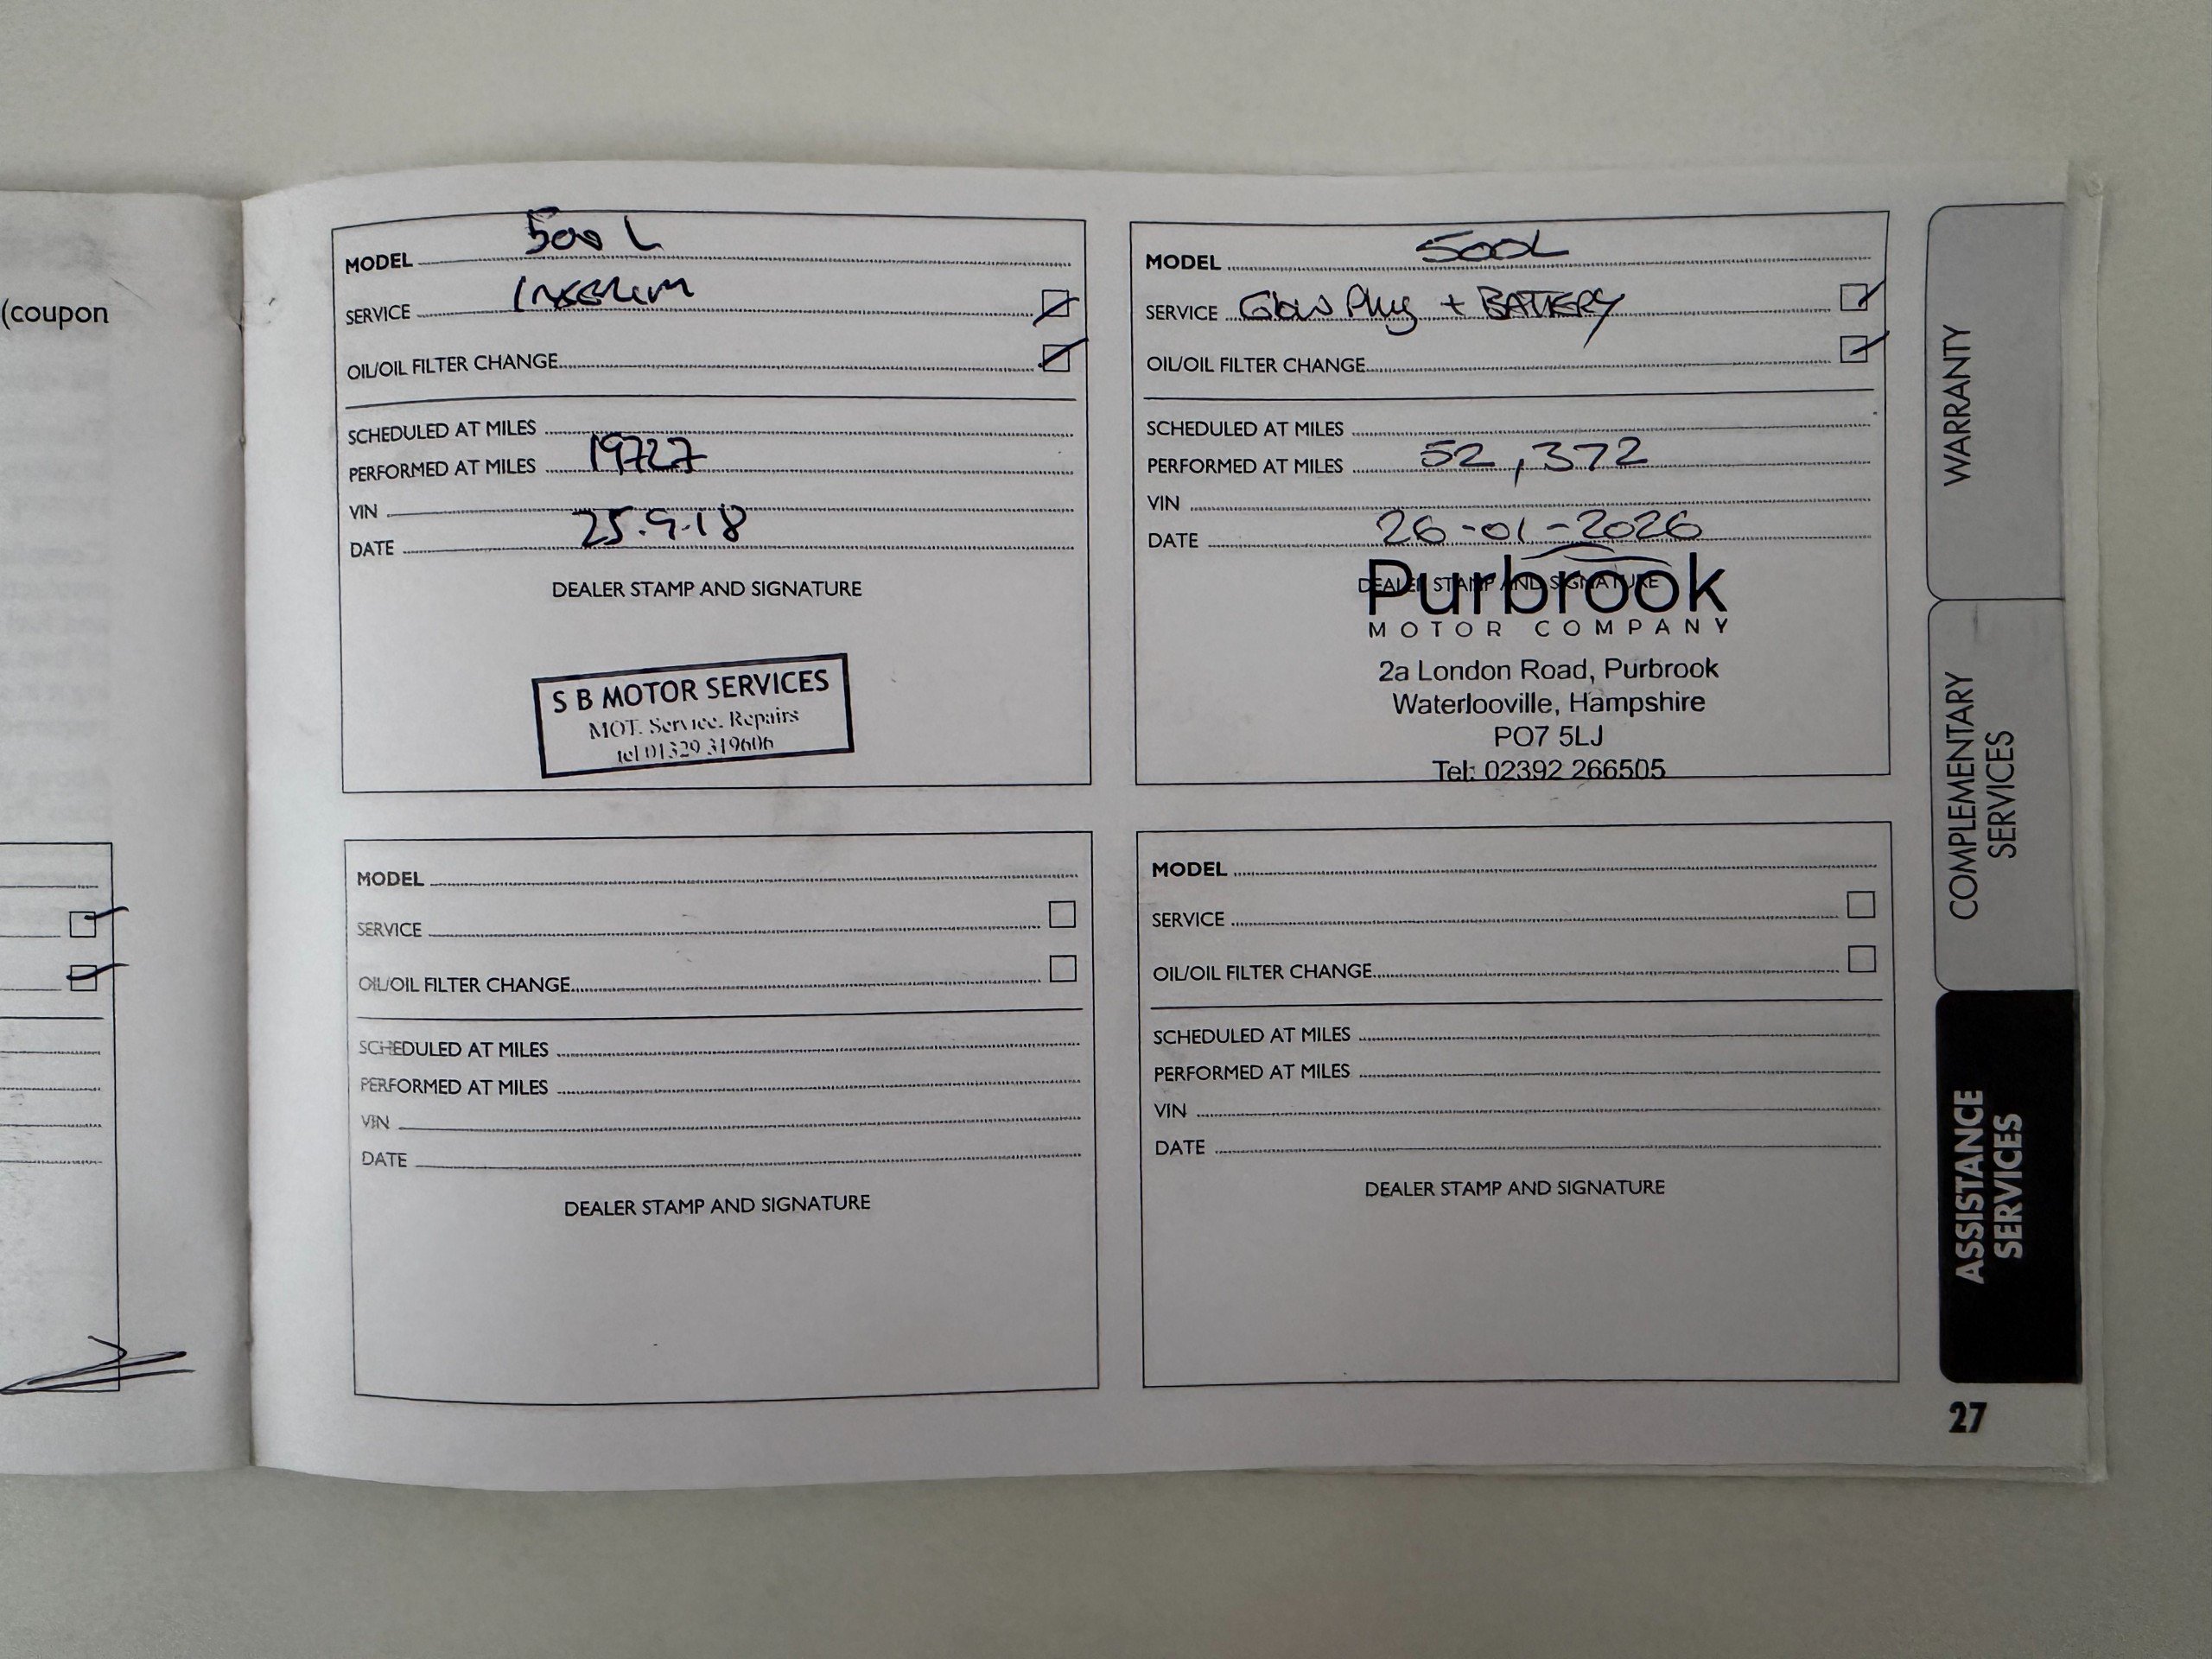 (coupon
MODEL 500 L
SERVICE
OIL/OIL FILTER CHANGE
SCHEDULED AT MILES
PERFORMED AT MILES 19727
VIN
DATE 25.9.18
DEALER STAMP AND SIGNATURE
S B MOTOR SERVICES
MOT. Service. Repairs
tel 01329 319606
MODEL 500L
SERVICE Glow Plug + BATTERY
OIL/OIL FILTER CHANGE
SCHEDULED AT MILES
PERFORMED AT MILES 52,372
VIN
DATE 26-01-2026
DEALER STAMP AND SIGNATURE
Purbrook
MOTOR COMPANY
2a London Road, Purbrook
Waterlooville, Hampshire
PO7 5LJ
Tel: 02392 266505
MODEL
SERVICE
OIL/OIL FILTER CHANGE
SCHEDULED AT MILES
PERFORMED AT MILES
VIN
DATE
DEALER STAMP AND SIGNATURE
MODEL
SERVICE
OIL/OIL FILTER CHANGE
SCHEDULED AT MILES
PERFORMED AT MILES
VIN
DATE
DEALER STAMP AND SIGNATURE
WARRANTY
COMPLEMENTARY
SERVICES
ASSISTANCE
SERVICES
27